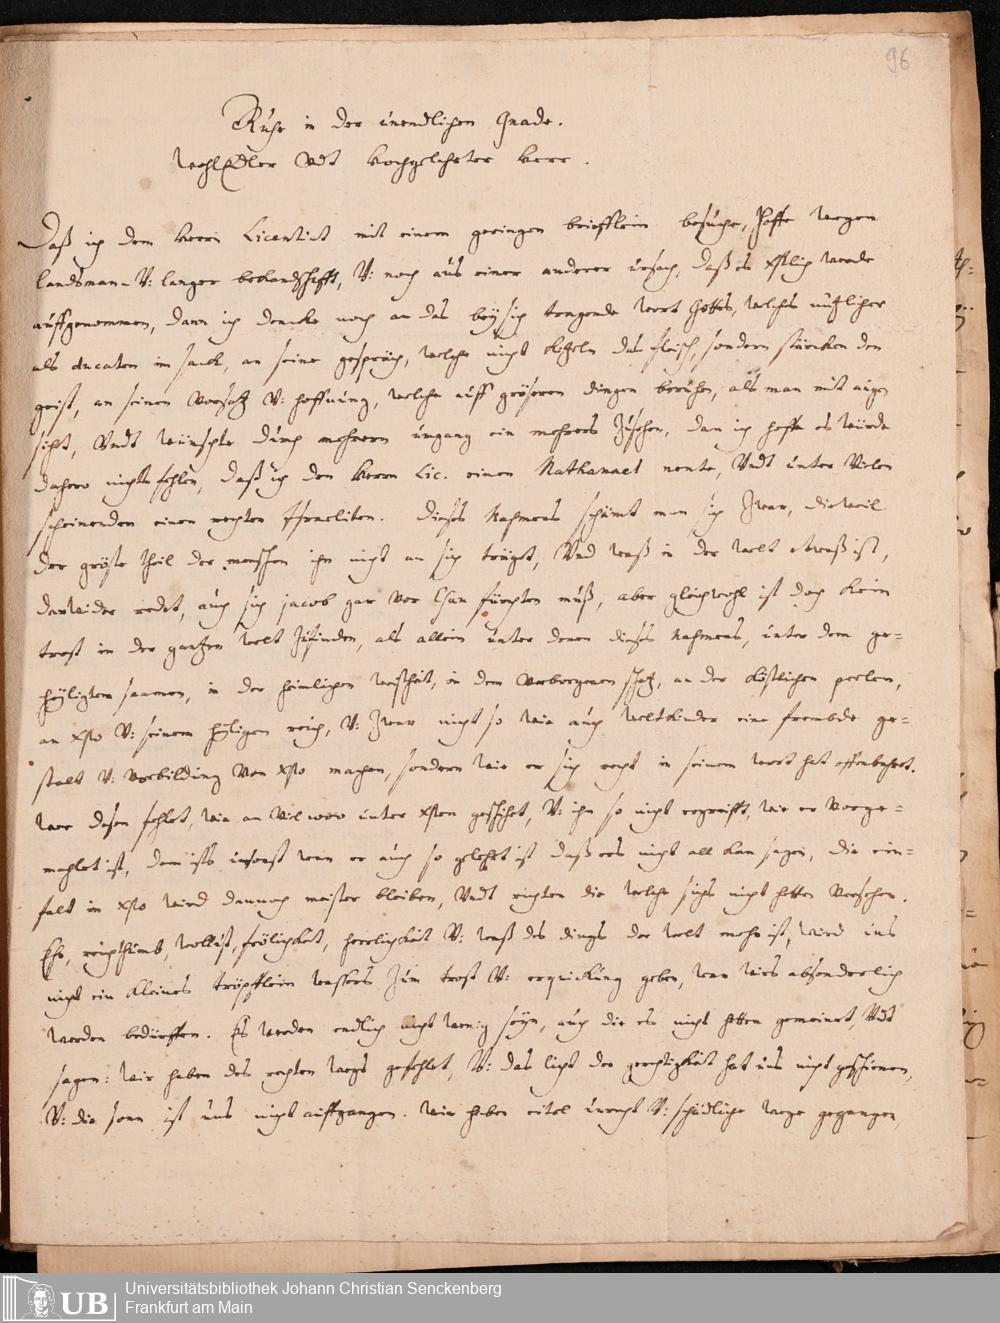 96
Ruhe in der unendlichen Gnade.
WohlEdler Vndt Hochgelehrter Herr.
Daß ich dem Herrn Licentiat mit einem geringen briefflein besuche, hoffe wegen
landsman- V: langer bekandschafft, V: noch aus einer anderer ursach, daß es xstlich werde
auffgenommen, dann ich dencke noch an das bey sich tragende wort Gottes, welches nützlicher
als ducaten im sack, an seine gespräch, welche nicht kitzeln das fleisch, sondern stärcken den
geist, an seinen Vorsatz V: hoffnung, welche auff grösern dingen beruhen, als man mit augen
sihet, Vndt wünschte durch mehrern umgang ein mehrers zusehen, dan ich hoffe es würde
dahero nichts fehlen, daß ich den Herrn Lic. einen Nathanael nente, Vndt unter Vielen
scheinenden einen rechten Israeliten. dieses Nahmens schämt man sich zwar, dieweil
der gröste theil der menschen ihn nicht an sich träget, Vnd waß in der welt etwaß ist,
darwider redet, auch sich jacob gar vor Esau fürchten muß, aber gleichwohl ist doch kein
trost in der gantzen welt zufinden, als allein unter denen dieses Nahmens, unter dem ge-
heyligtem saamen, in der heimlichen weißheit, in dem verborgenen schatz, an der köstlichen perlen,
an xsto V: seinem heyligen reich, V: zwar nicht so wie auch weltkinder eine frembde ge-
stalt V: vorbildung Von xsto machen, sondern wie er sich recht in seinem wort hat offenbahret.
wer dasen fehlet, wie an Vilwo unter xsten geschihet, V: ihn so nicht ergreifft, wie er vorge-
mahlet ist, dem ists umsonst wan er auch so gelehrt ist daß ers nicht all kan sagen, die ein-
falt in xsto wird dannoch meister bleiben, Vndt richten die welche sichs nicht hetten versehen.
Ehr, reichthumb, wollust, frölichkeit, herrlichkeit V: waß des dings der welt mehr ist, wird uns
nicht ein kleines tröpfflein wassers zum trost V: erquickung geben, wan wirs absonderlich
werden bedürffen. Es werden endlich nicht wenig seyn, auch die es nicht hetten gemeinet, Vndt
sagen: wir haben des rechten wegs gefehlet, V: das licht der gerechtigkeit hat uns nicht geschienen,
V: die sonn ist uns nicht auffgangen. wir haben eitel unrecht V: schädliche wege gegangen,
Universitätsbibliothek Johann Christian Senckenberg
Frankfurt am Main
UB